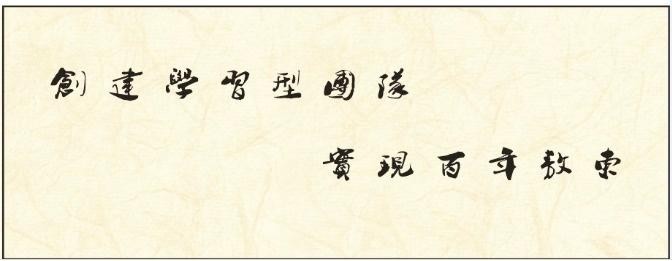 創建學習型團隊
實現百年敖東